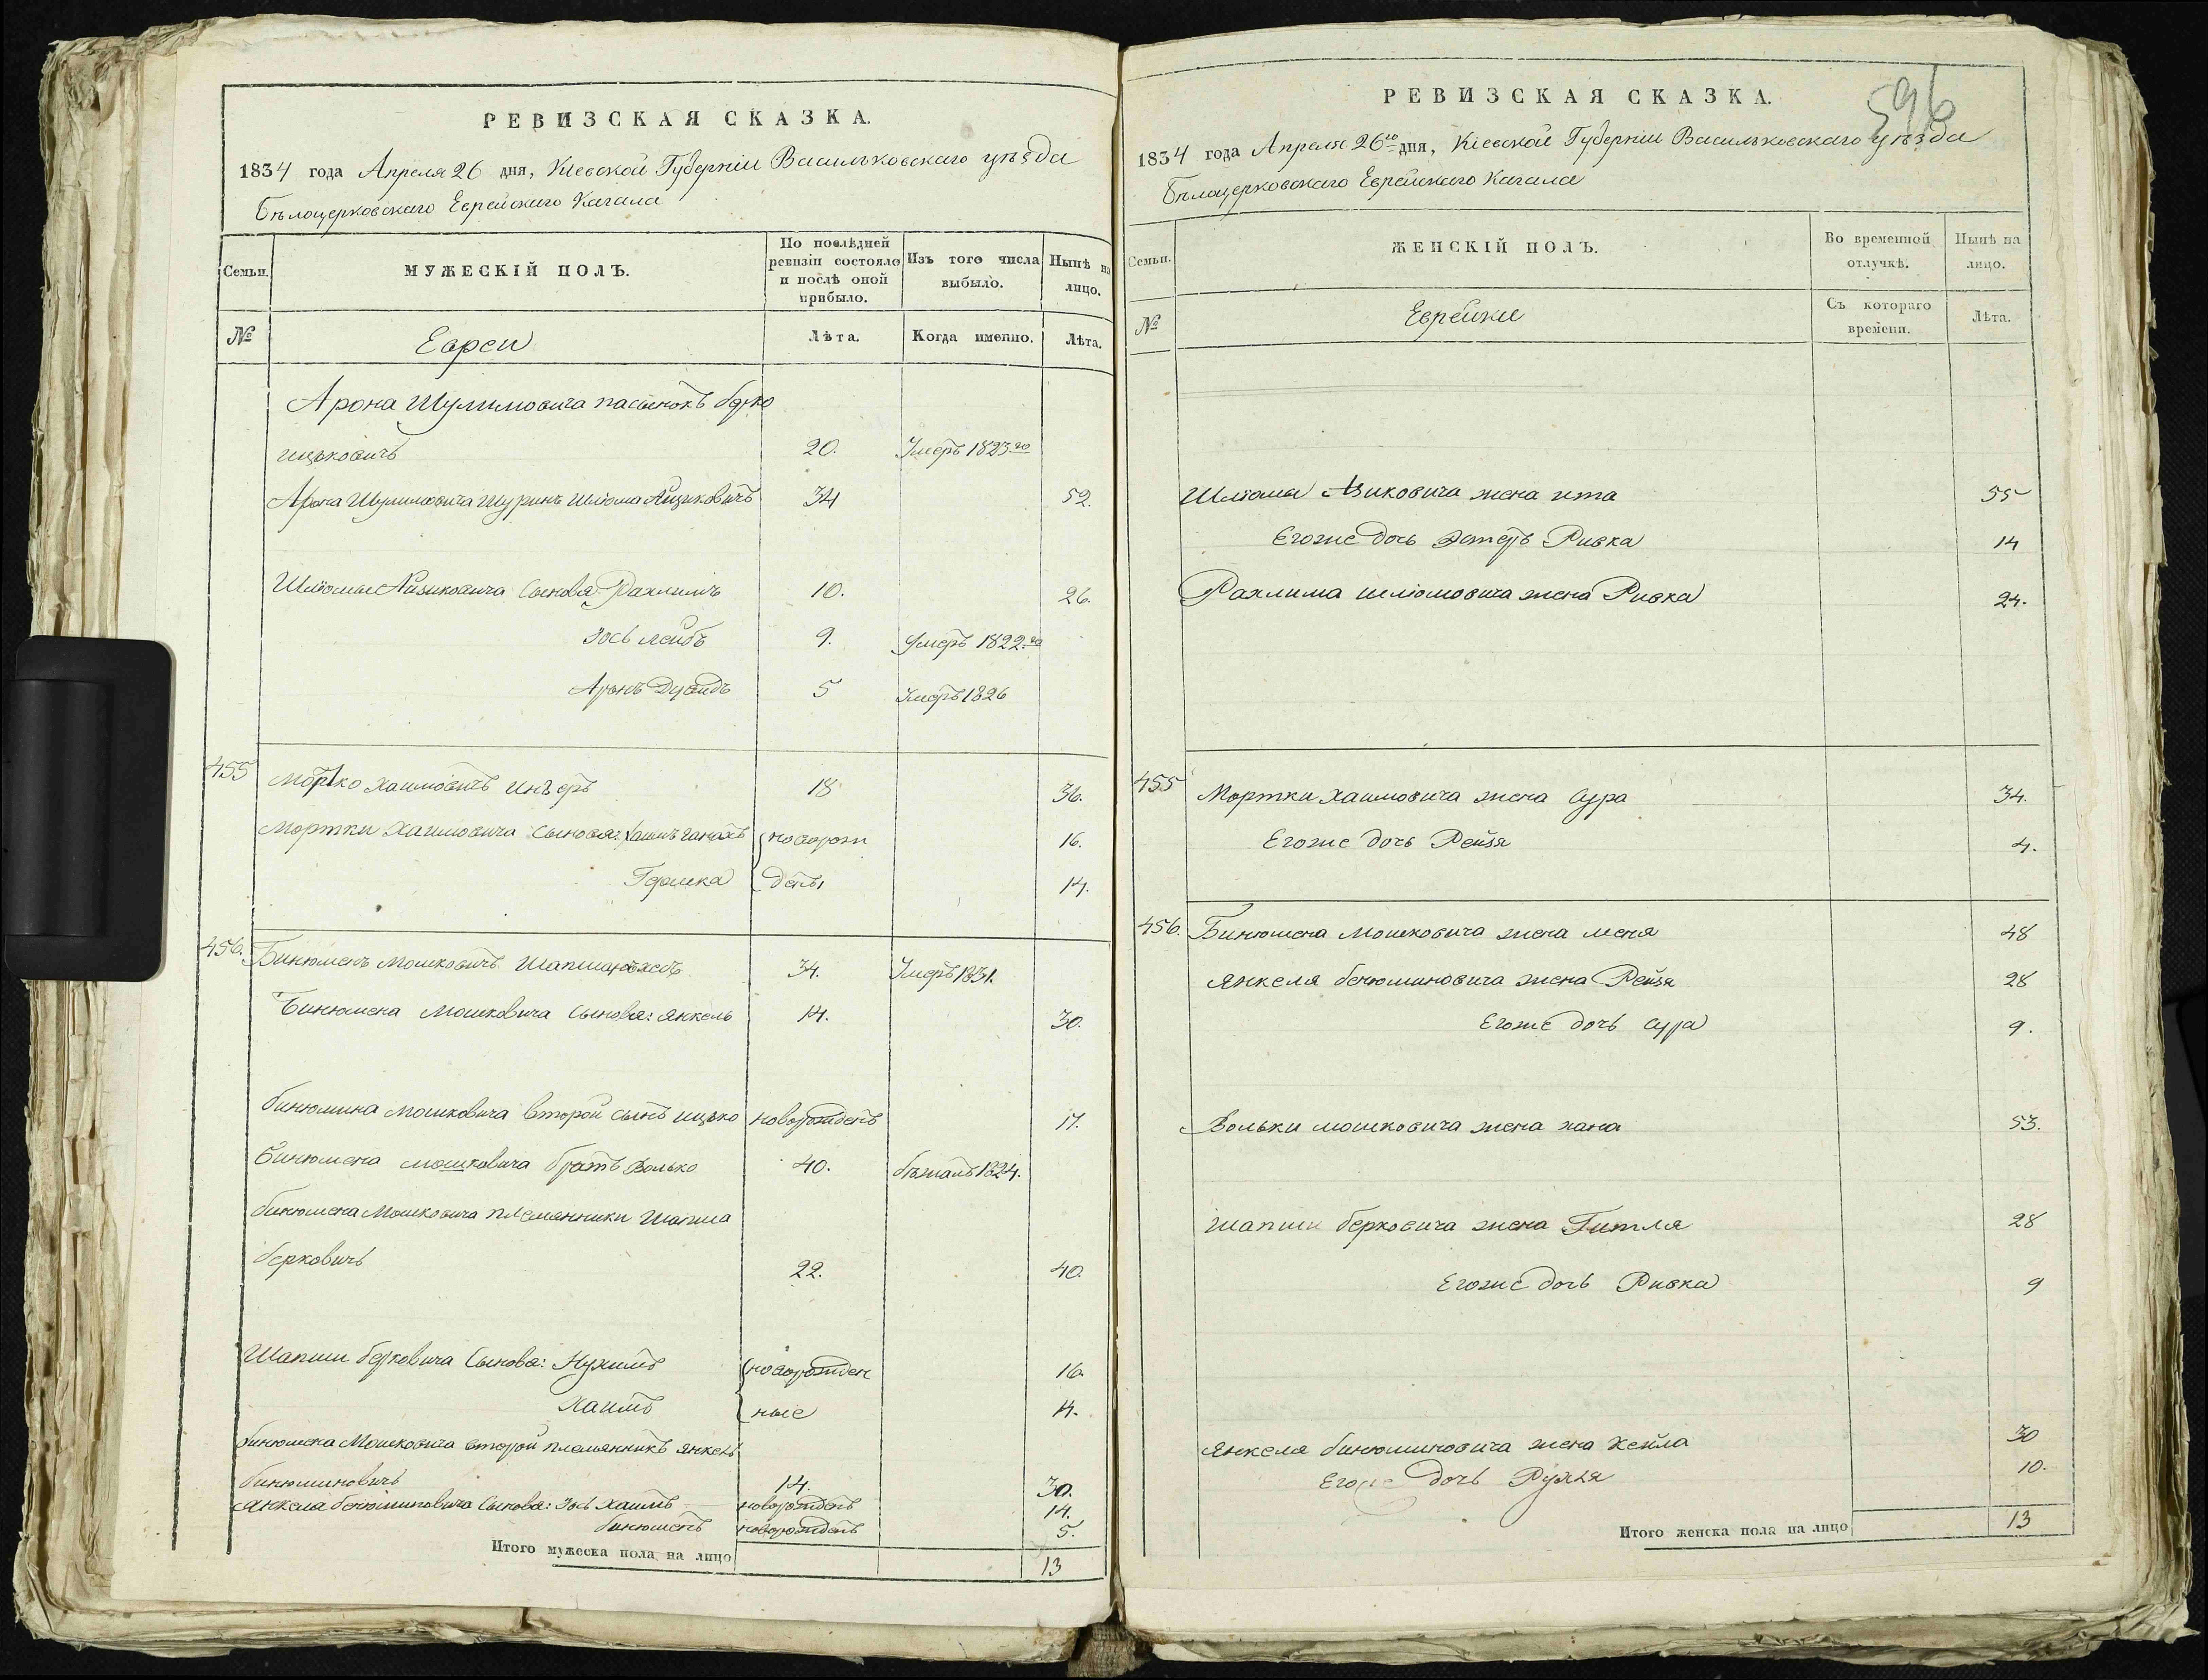 РЕВИЗСКАЯ СКАЗКА.
1834 года Апреля 26 дня, Кіевской Губерніи Васильковскаго уѣзда
Бѣлоцерковскаго Еврейскаго Кагала
Семьи. МУЖЕСКІЙ ПОЛЪ. По послѣдней ревизіи состояло и послѣ оной прибыло. Изъ того числа выбыло. Нынѣ на лицо.
№ Евреи Лѣта. Когда именно. Лѣта.
Арона Шулимовича пасынокъ берко
ицковичъ 20. Умеръ 1823го
Арона Шулимовича Шуринъ Шліома Айзиковичъ 34 52.
Шліомы Айзиковича Сыновья Рахлимъ 10. 26.
Іось лейбъ 9. Умеръ 1822го
Аронъ Дувидъ 5 Умеръ 1826
455 Мортко Хаимовичъ 18 36.
Мортки Хаимовича Сыновья: новорож 16.
Гершка дены 14.
456. Бинюменъ Мошковичъ 34. Умеръ 1831.
Бинюмена Мошковича Сыновья: Янкель 14. 30.
бинюмина мошковича второй сынъ ицько новорожденъ 17.
бинюмена мошковича братъ Волько 40. бѣжалъ 1824.
бинюмена Мошковича племянники Шапша
берковичъ 22. 40.
Шапши берковича Сыновья: Нухимъ новорожден 16.
Хаимъ ные 14.
бинюмена Мошковича второй племянникъ янкель
бинюминовичъ 14. 30.
Янкеля бенюминовича Сыновья: Іось Хаимъ новорожденъ 14.
бинюменъ новорожденъ 5.
Итого мужеска пола на лицо 13
596
РЕВИЗСКАЯ СКАЗКА.
1834 года Апреля 26го дня, Кіевской Губерніи Васильковскаго уѣзда
Бѣлоцерковскаго Еврейскаго Кагала
Семьи. ЖЕНСКІЙ ПОЛЪ. Во временной отлучкѣ. Нынѣ на лицо.
№ Еврейки Съ котораго времени. Лѣта.
Шліомы Азиковича жена ита 55
Егоже дочь Эстеръ Ривка 14
Рахлима шліомовича жена Ривка 24.
455 Мортки Хаимовича жена Сура 34.
Егоже дочь Рейзя 4.
456. Бинюмена Мошковича жена меня 48
Янкеля бенюминовича жена Рейзя 28
Егоже дочь Сура 9.
Вольки мошковича жена хана 53.
Шапши берковича жена Гитля 28
Егоже дочь Ривка 9
Янкеля бинюминовича жена Хейла 30
Егоже дочь 10.
Итого женска пола на лицо 13